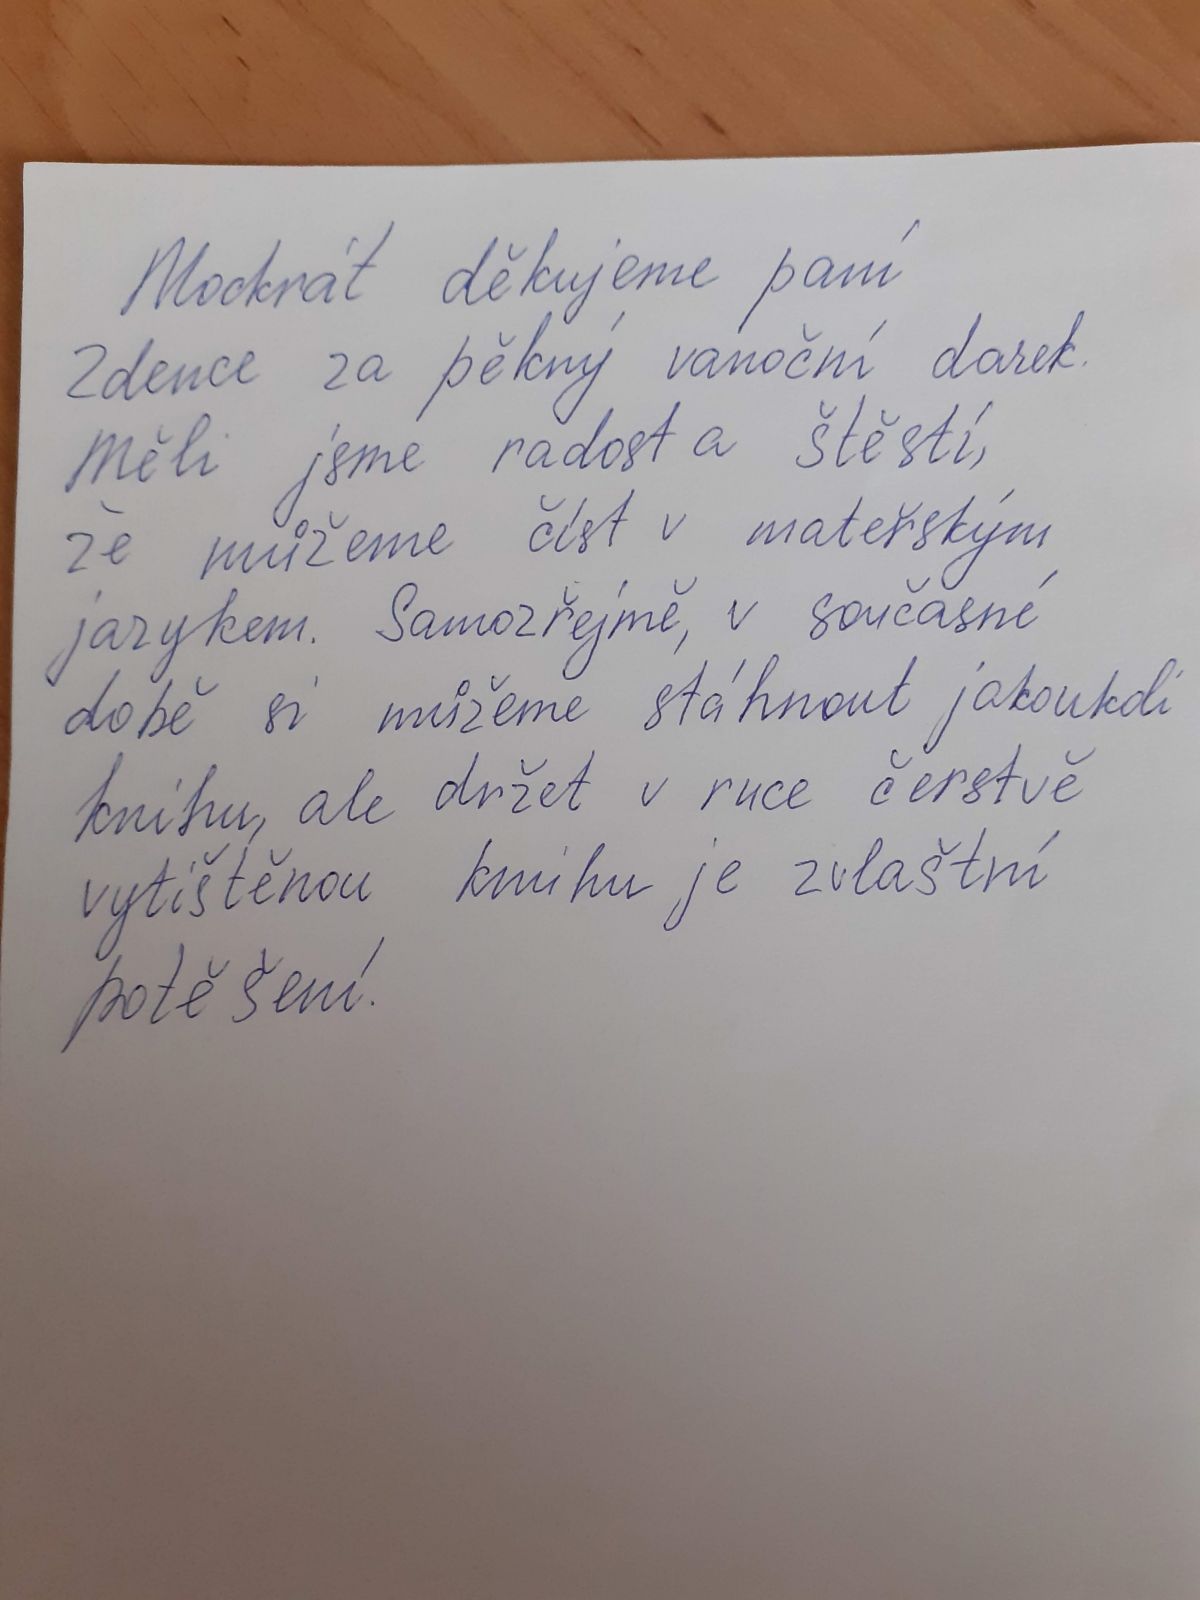 Mockrát děkujeme paní
Zdence za pěkný vanoční darek.
Měli jsme radost a štěstí,
že můžeme číst v mateřským
jazykem. Samozřejmě, v současné
době si můžeme stáhnout jakoukdi
knihu, ale držet v ruce čerstvě
vytištěnou knihu je zvlaštní
potěšení.